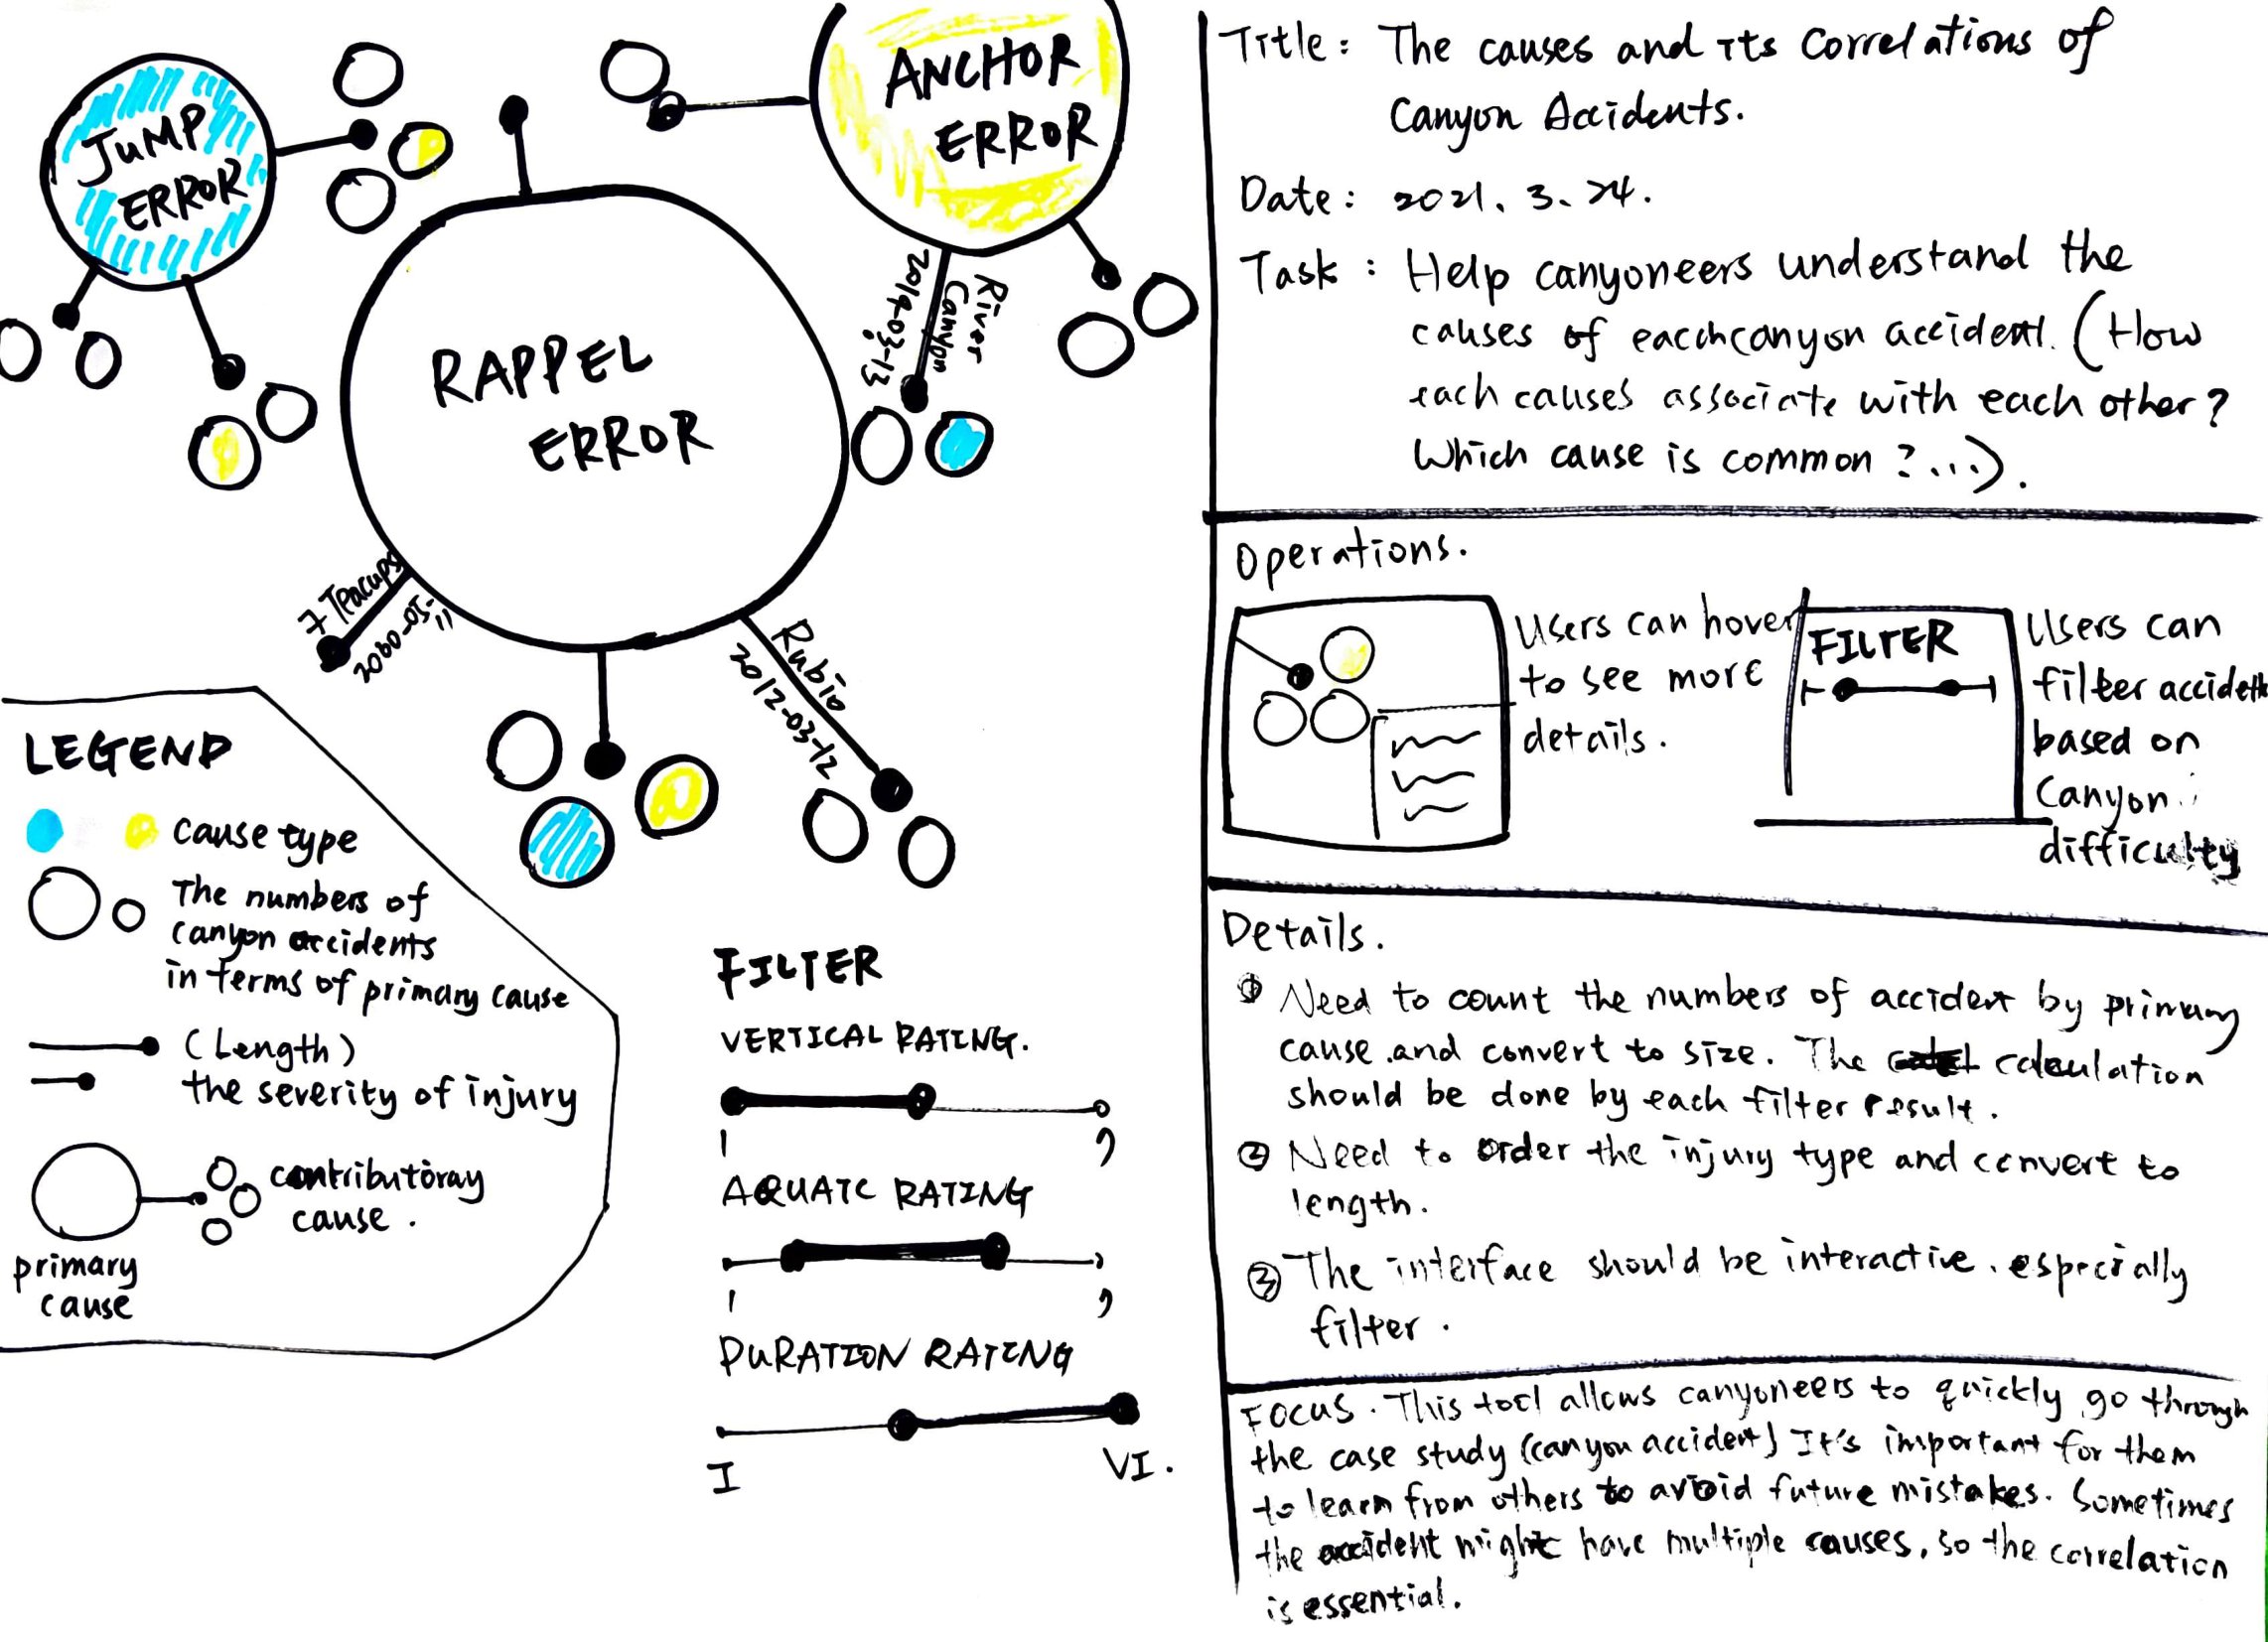 JUMP
ERROR
ANCHOR
ERROR
RAPPEL
ERROR
River
Canyon
2019-03-13
7 Teacups
2000-05-11
Rubio
2012-03-12
LEGEND
cause type
The numbers of
canyon accidents
in terms of primary cause
(Length)
the severity of injury
contributoray
cause.
primary
cause
FILTER
VERTICAL RATING.
1
7
AQUATC RATING
1
7
DURATION RATING
I
VI.
Title: The causes and its Correlations of
Canyon Accidents.
Date: 2021. 3. 24.
Task: Help canyoneers understand the
causes of eacchcanyon accident. (How
each causes associate with each other?
Which cause is common?...).
Operations.
Users can hover
to see more
details.
FILTER
Users can
filter
based on
Canyon
difficulty
Details.
① Need to count the numbers of accident by primary
cause.and convert to size. The calculation
should be done by each filter result.
② Need to order the injury type and convert to
length.
③ The interface should be interactive. especially
filter.
FOCUS. This tool allows canyoneers to quickly go through
the case study (canyon accident) It's important for them
to learn from others to avoid future mistakes. Sometimes
the accident might have multiple causes, so the correlation
is essential.